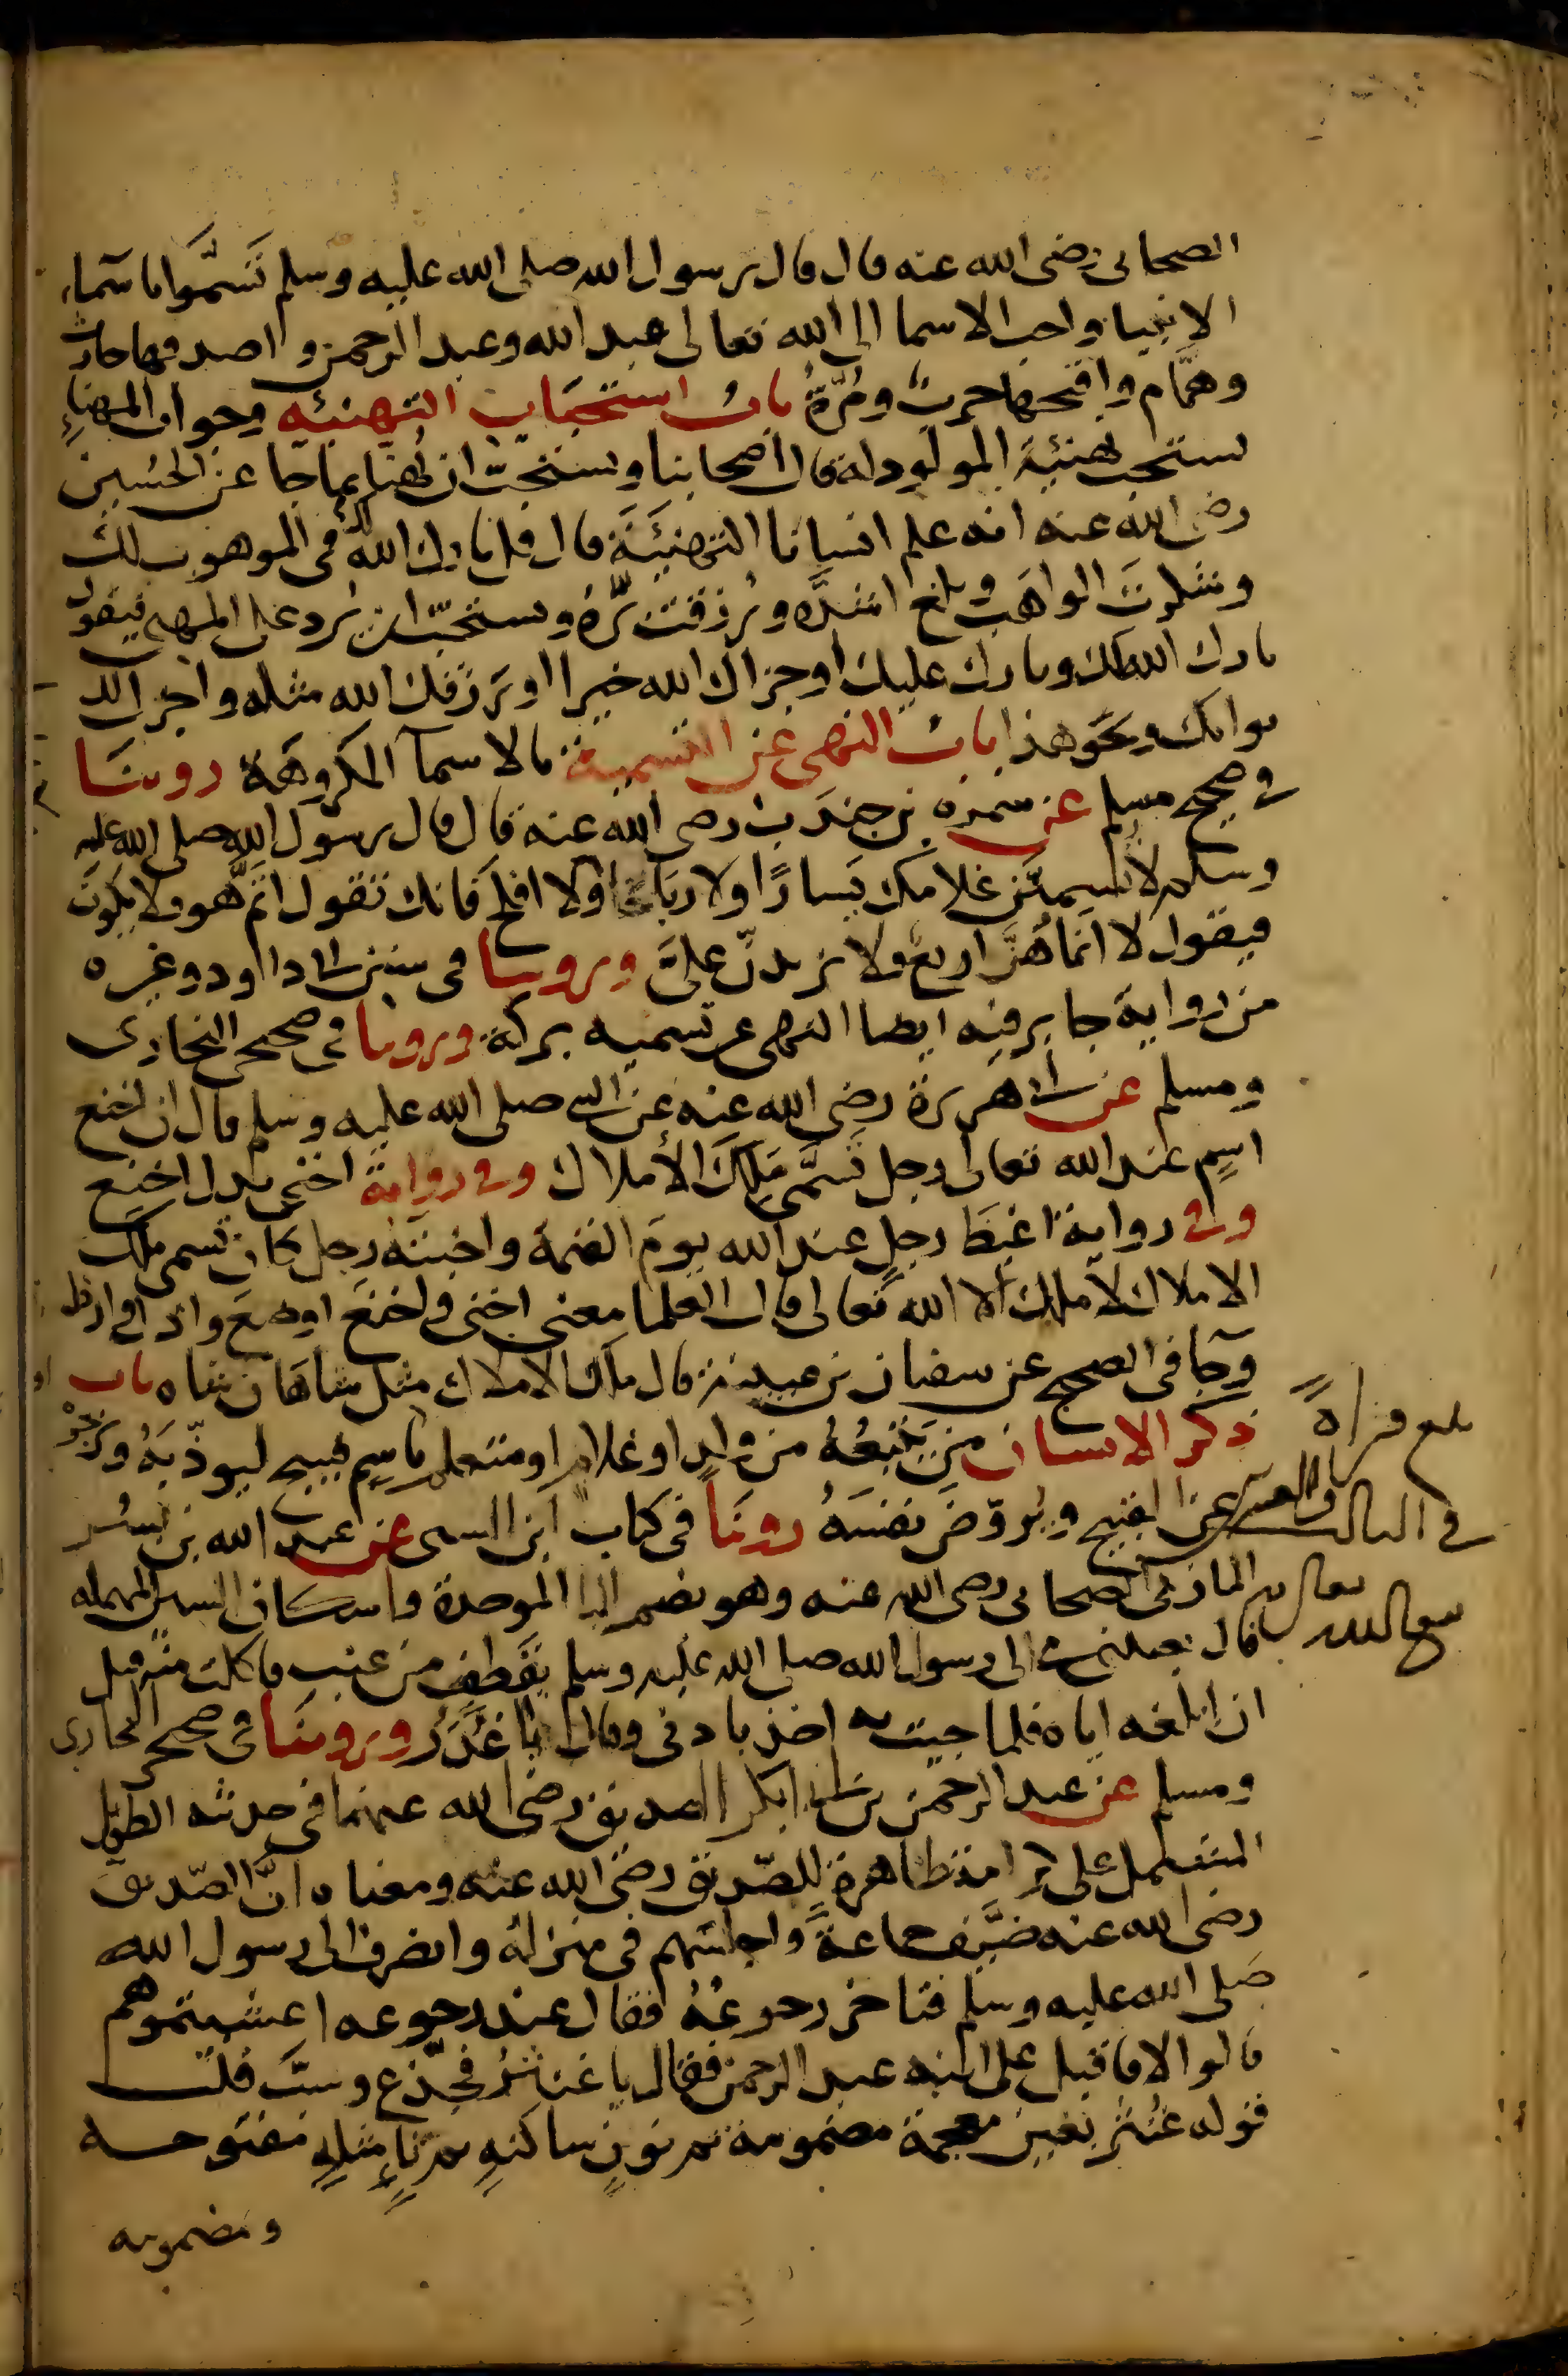 الصحابى رضى الله عنه قال قال رسول الله صلى الله عليه وسلم تَسَمَّوا باسماء
الانبيا واحب الاسما الى الله تعالى عبد الله وعبد الرحمن واصدقها حارث
وهمَّام واقبحها حرب ومُرَّةُ بابُ استحباب التهنيه وجواب المهناءِ
يستحب تهنئة المولود له قال اصحابنا ويستحبّ ان يُهنا بما جا عن الحُسين
رضى الله عنه انه علم انسانا التهنيئة قال قل بارك الله لك فى الموهوب لك
وشكرتَ الواهبَ وبلغ اشدَّه ورُزقت برَّهُ ويستحبّ ان يُرد على المهنى فيقول
بارك الله لك وبارك عليك اوجزاك الله خيرا او رَزقك الله مثله واجزل الله
ثوابك ونحو هذا بابُ النهى عن التسمية بالاسمآ المكروهة روينا
فى صحيح مسلم عن سمرة بن جندب رضى الله عنه قال قال رسول الله صلى الله عليه
وسلم لا تُسمينَّ غلامك يَسارًا ولا رباحا ولا افلح فانك تقول اثَمَّ هو فلا يكون
فيقول لا انما هُنَّ اربع ولا تزيدنّ علىَّ وروينا فى سنن ابى داود وغيره
من رواية جابر فيه ايضا النهى عن تسميه بركة وروينا فى صحيح البخارى
ومسلم عن ابى هريرة رضى الله عنه عن النبى صلى الله عليه وسلم قال ان اخنع
اسمٍ عند الله تعالى رجل تَسمَّى مَلِكَ الأملاك وفى رواية اخنى بدل اخنع
وفى رواية اغيظ رجلٍ عند الله يومَ القيمة واخبثه رجل كان تسمى ملك
الاملاك لا ملك الا الله تعالى قال العلما معنى اخنى واخنع اوضع واذل وارذل
وجآ فى الصحيح عن سفيان بن عيينة قال ملك الاملاك مثل شاهان شاه باب
ذكر الانسان من يَتْبعُهُ من ولدٍ او غلامٍ او متعلمٍ باسمٍ قبيح ليوذّبَهُ ويزجرْه
عن القبيح ويُروّضَ نفسَهُ روينا فى كتاب ابن السنى عن عبد الله بن بُسْر
المازنى الصحابى رضى الله عنه وهو بضم البا الموحدة واسكان السين المهمله
قال بعثتنى الى رسول الله صلى الله عليه وسلم بقِطفٍ من عنب فاكلت منه قبل
ان ابلغه اياه فلما جيت به اخذ باذنى وقال يا غُدَرُ وروينا فى صحيح البخارى
ومسلم عن عبد الرحمن بن ابى بكر الصديق رضى الله عنهما فى حديثه الطويل
المشتمل على كرامة ظاهرة للصّديق رضى الله عنه ومعناه انَّ الصّديق
رضى الله عنه ضيَّف جماعةً واجلسهم فى منزله وانصرف الى رسول الله
صَلى الله عليه وسلم فتاخر رجوعُهُ فقال عند رجوعه اعشيتموهم
قالوا لا فاقبل على ابنه عبد الرحمن فقال يا غنثرُ فجدّع وسَبَّ قلت
قوله غُنْثَر بغينٍ معجمة مضمومة ثم نونٍ ساكنهٍ ثم ثاءٍ مثلثهٍ مفتوحه
ومضمومه
بلغ قراةً
فى الثالث والعشر